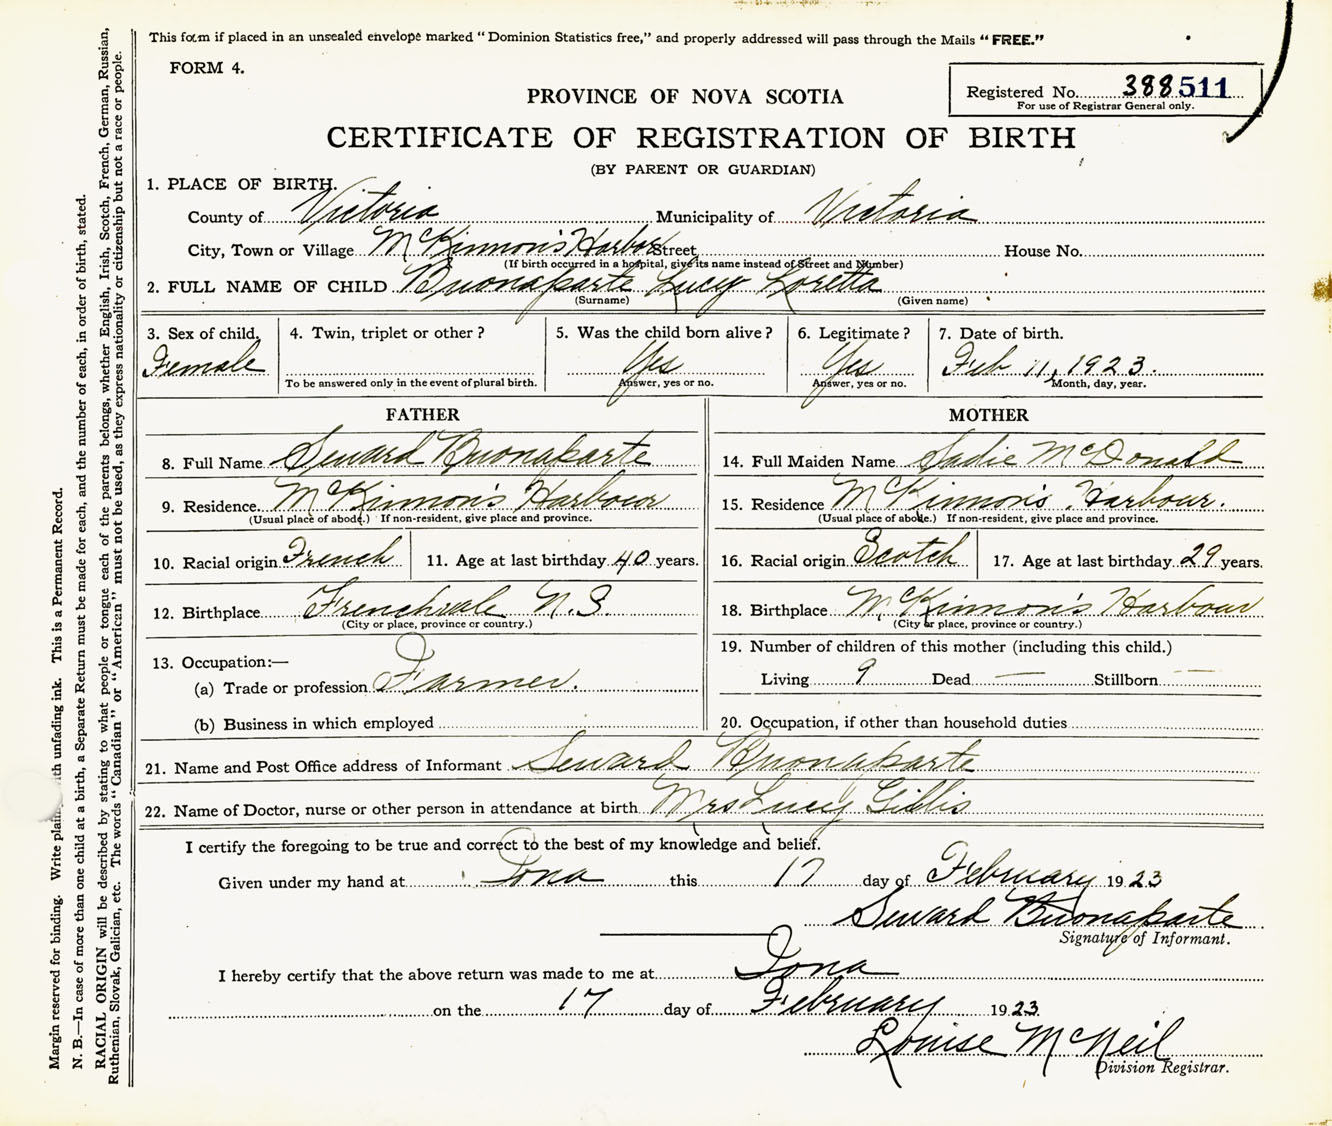 This form if placed in an unsealed envelope marked "Dominion Statistics free," and properly addressed will pass through the Mails "FREE."
FORM 4.
Registered No. 388511
For use of Registrar General only.
PROVINCE OF NOVA SCOTIA
CERTIFICATE OF REGISTRATION OF BIRTH
(BY PARENT OR GUARDIAN)
1. PLACE OF BIRTH.
County of Victoria Municipality of Victoria
City, Town or Village McKinnon's Harbor Street House No.
(If birth occurred in a hospital, give its name instead of Street and Number)
2. FULL NAME OF CHILD Buonaparte Lucy Loretta
(Surname) (Given name)
3. Sex of child. 4. Twin, triplet or other? 5. Was the child born alive? 6. Legitimate? 7. Date of birth.
Female Yes Yes Feb 11, 1923.
To be answered only in the event of plural birth. Answer, yes or no. Answer, yes or no. Month, day, year.
FATHER MOTHER
8. Full Name Seward Buonaparte 14. Full Maiden Name Sadie McDonald
9. Residence McKinnon's Harbour 15. Residence McKinnon's Harbour.
(Usual place of abode.) If non-resident, give place and province. (Usual place of abode.) If non-resident, give place and province.
10. Racial origin French 11. Age at last birthday 40 years. 16. Racial origin Scotch 17. Age at last birthday 29 years.
12. Birthplace Frenchvale N.S. 18. Birthplace McKinnon's Harbour
(City or place, province or country.) (City or place, province or country.)
13. Occupation:— 19. Number of children of this mother (including this child.)
(a) Trade or profession Farmer. Living 9 Dead — Stillborn —
(b) Business in which employed 20. Occupation, if other than household duties
21. Name and Post Office address of Informant Seward Buonaparte
22. Name of Doctor, nurse or other person in attendance at birth Mrs Lucy Gillis
I certify the foregoing to be true and correct to the best of my knowledge and belief.
Given under my hand at Iona this 17 day of February 1923
Seward Buonaparte
Signature of Informant.
I hereby certify that the above return was made to me at Iona
on the 17 day of February 1923
Louise McNeil
Division Registrar.
Margin reserved for binding. Write with unfading ink. This is a Permanent Record.
N. B.—In case of more than one child at a birth, a Separate Return must be made for each, and the number of each, in order of birth, stated.
RACIAL ORIGIN will be described by stating to what people or tongue each of the parents belongs, whether English, Irish, Scotch, French, German, Russian,
Ruthenian, Slovak, Galician, etc. The words "Canadian" or "American" must not be used, as they express nationality or citizenship but not a race or people.